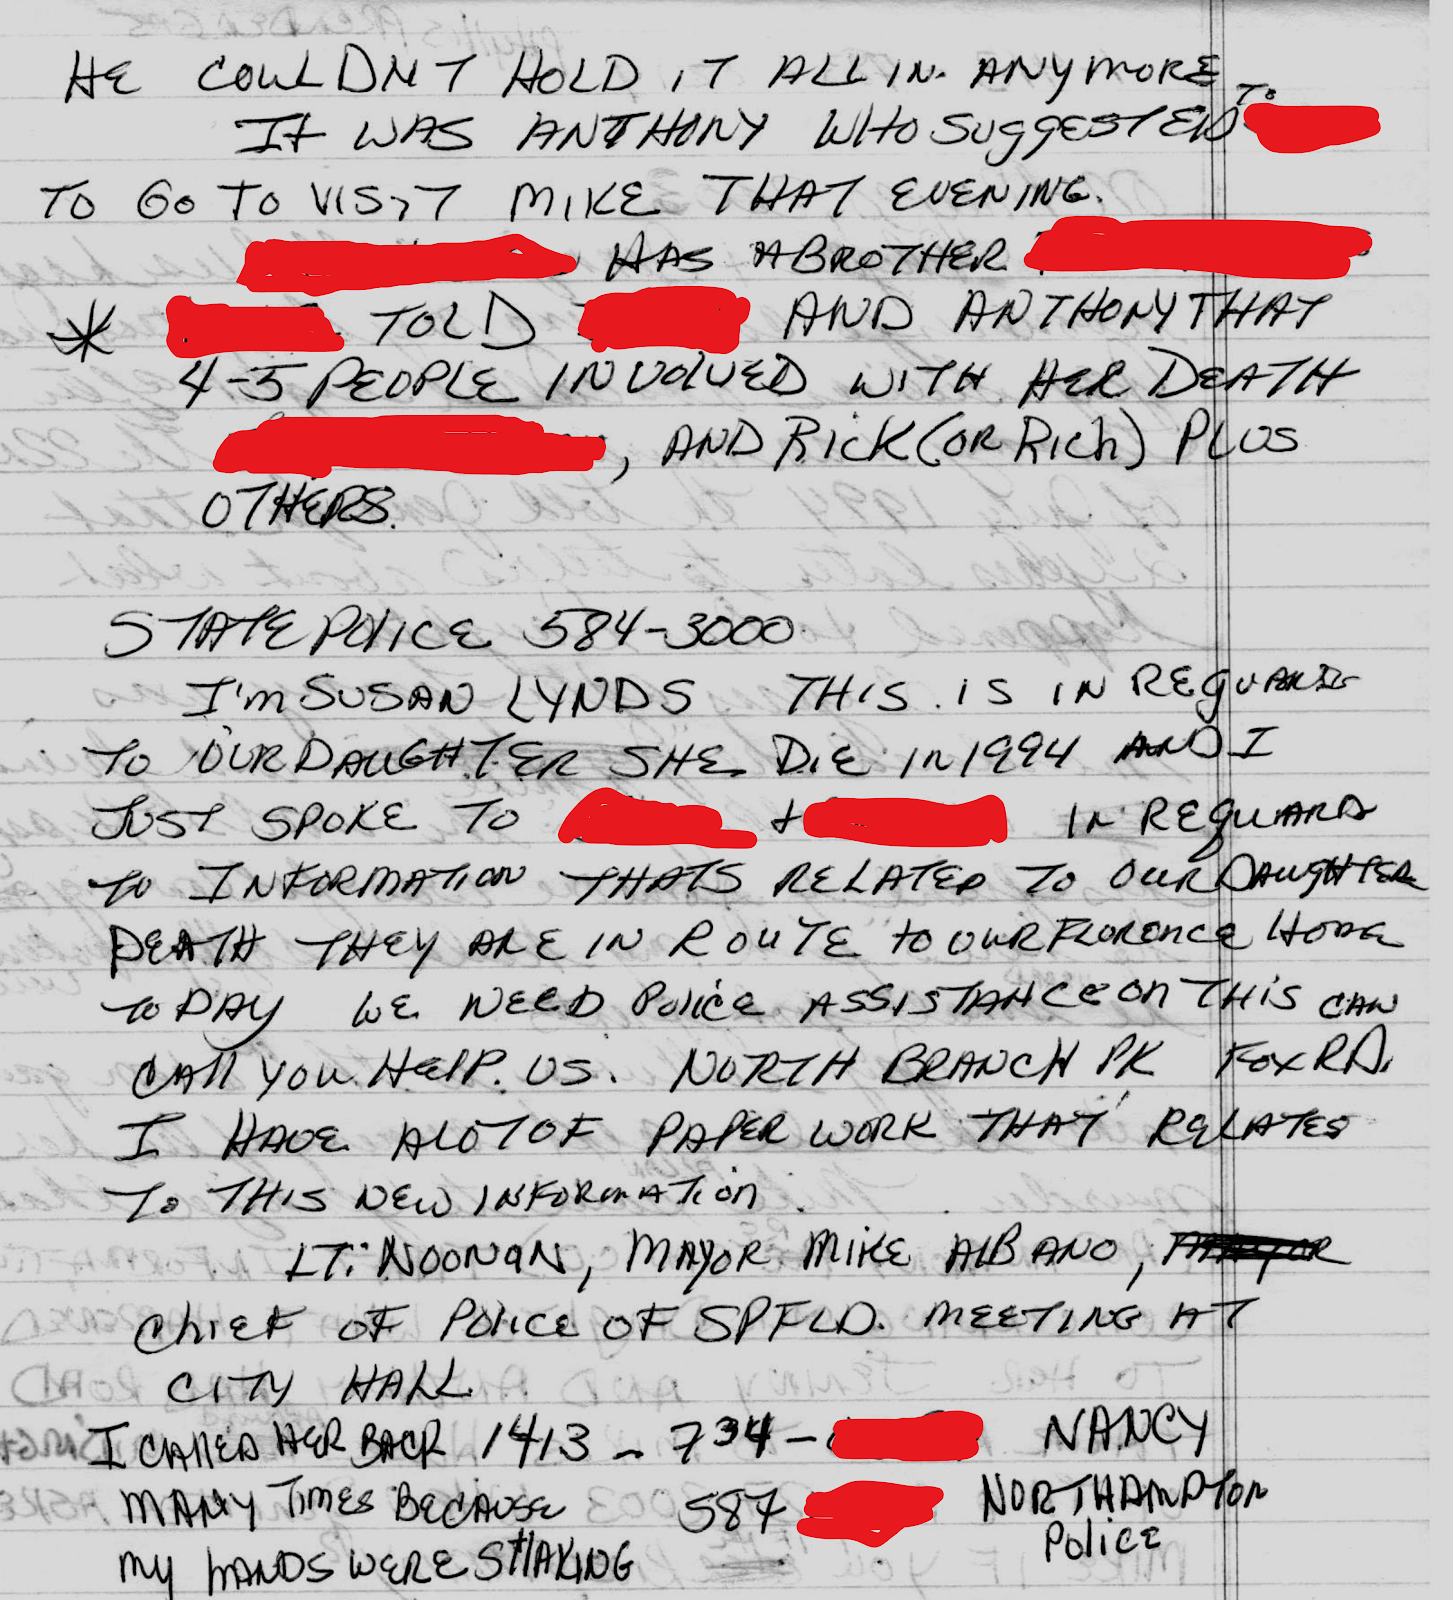 HE COULDNT HOLD IT ALL IN. ANYMORE
IT WAS ANTHONY WHO SUGGESTED TO
TO GO TO VISIT MIKE THAT EVENING.
HAS A BROTHER
* TOLD AND ANTHONY THAT
4-5 PEOPLE INVOLVED WITH HER DEATH
, AND RICK (OR RICH) PLUS
OTHERS.
STATE POLICE 584-3000
I'M SUSAN LYNDS THIS IS IN REGUARDS
TO OUR DAUGHTER SHE DIE IN 1994 AND I
JUST SPOKE TO + IN REGUARD
TO INFORMATION THATS RELATED TO OUR DAUGHTER
DEATH THEY ARE IN ROUTE TO OUR FLORENCE HOME
TODAY WE NEED POLICE ASSISTANCE ON THIS CAN
CALL YOU HELP. US. NORTH BRANCH PK FOX RD.
I HAVE A LOT OF PAPER WORK THAT RELATES
TO THIS NEW INFORMATION.
LT. NOONAN, MAYOR MIKE ALBANO, MAYOR
CHIEF OF POLICE OF SPFLD. MEETING AT
CITY HALL
I CALLED HER BACK 1413 - 734 - NANCY
MANY TIMES BECAUSE 587 NORTHAMPTON
MY HANDS WERE SHAKING POLICE